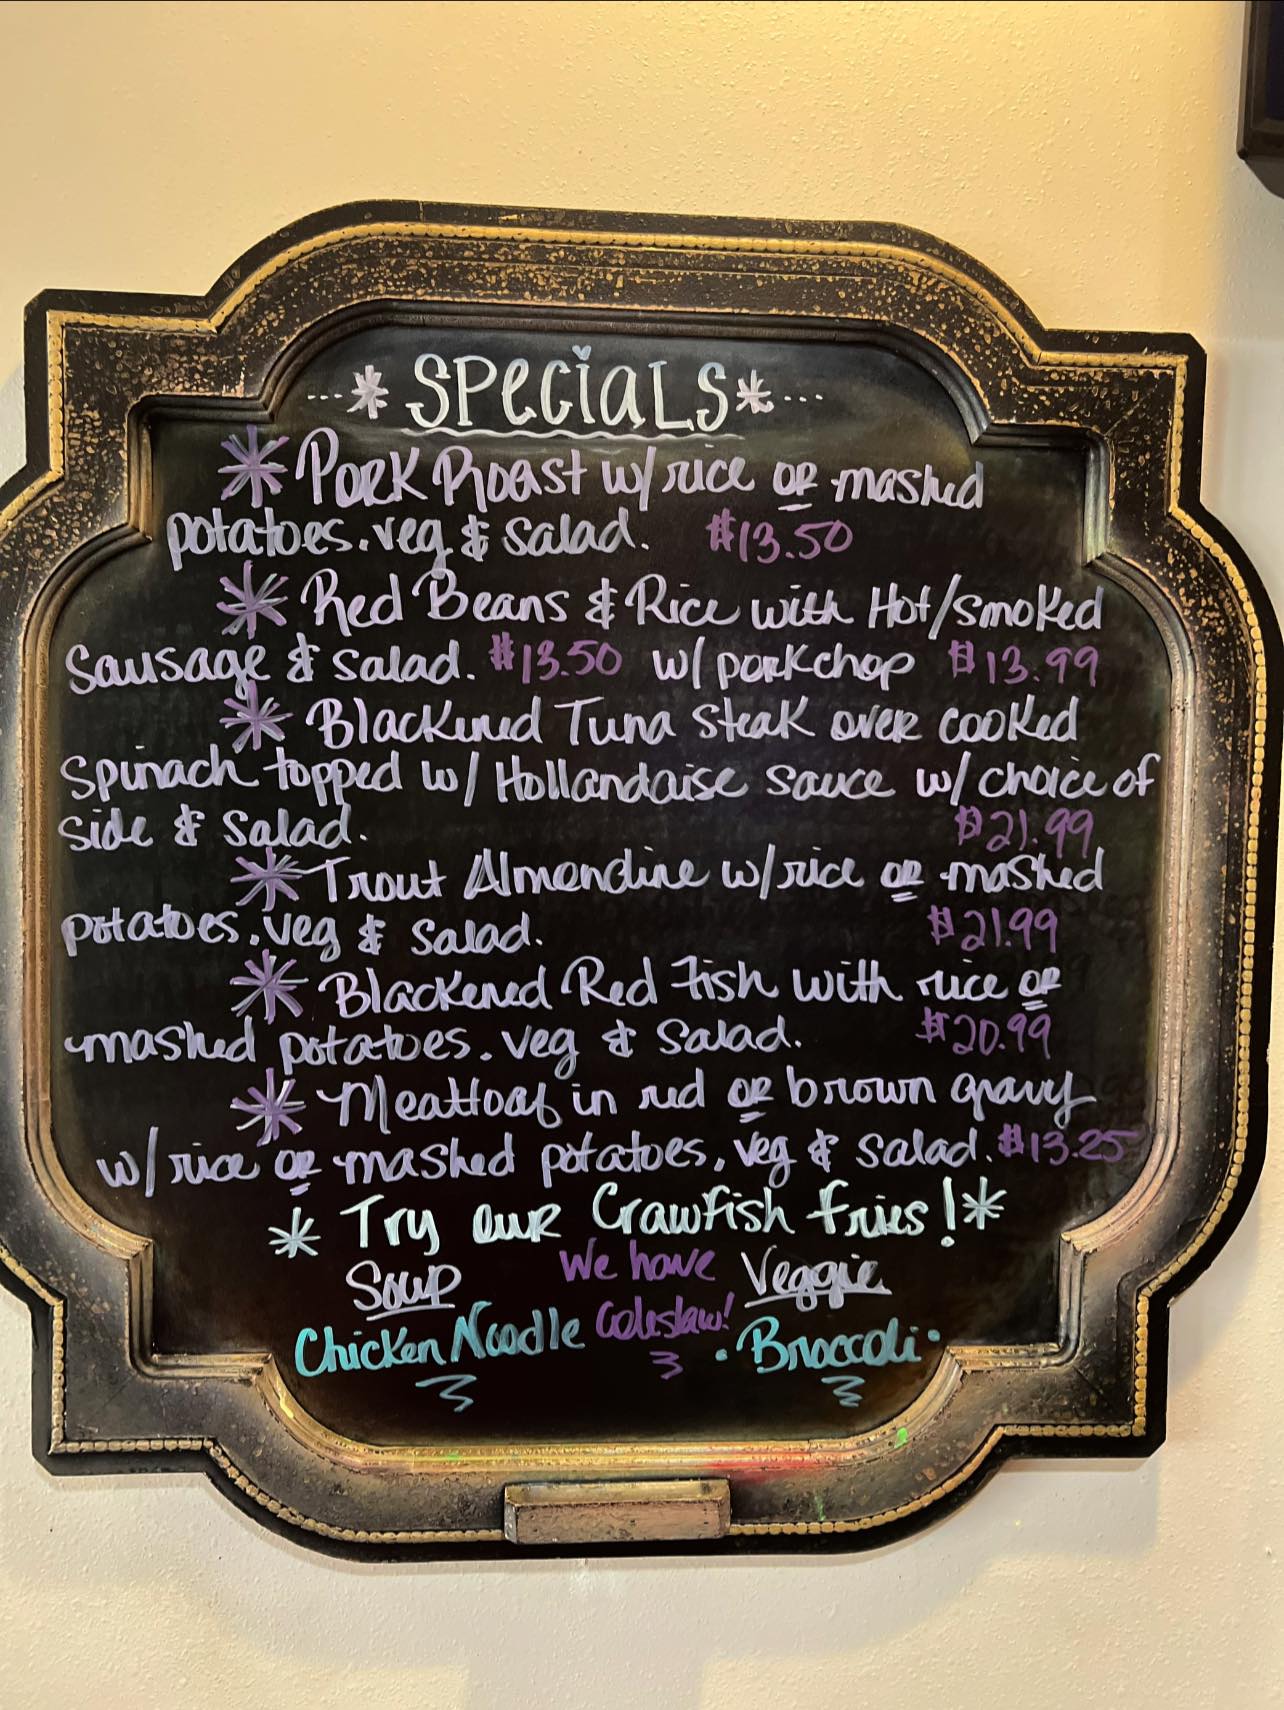 ...* SPECIALS *...
* Pork Roast w/ rice or mashed
potatoes, veg & salad. $13.50
* Red Beans & Rice with Hot/smoked
Sausage & salad. $13.50 w/ porkchop $13.99
* Blackened Tuna steak over cooked
Spinach topped w/ Hollandaise sauce w/ choice of
side & salad. $21.99
* Trout Almondine w/ rice or mashed
potatoes, veg & salad. $21.99
* Blackened Red Fish with rice or
mashed potatoes, veg & salad. $20.99
* Meatloaf in red or brown gravy
w/ rice or mashed potatoes, veg & salad. $13.25
* Try our Crawfish fries! *
Soup We have Veggie
Chicken Noodle Coleslaw! • Broccoli •